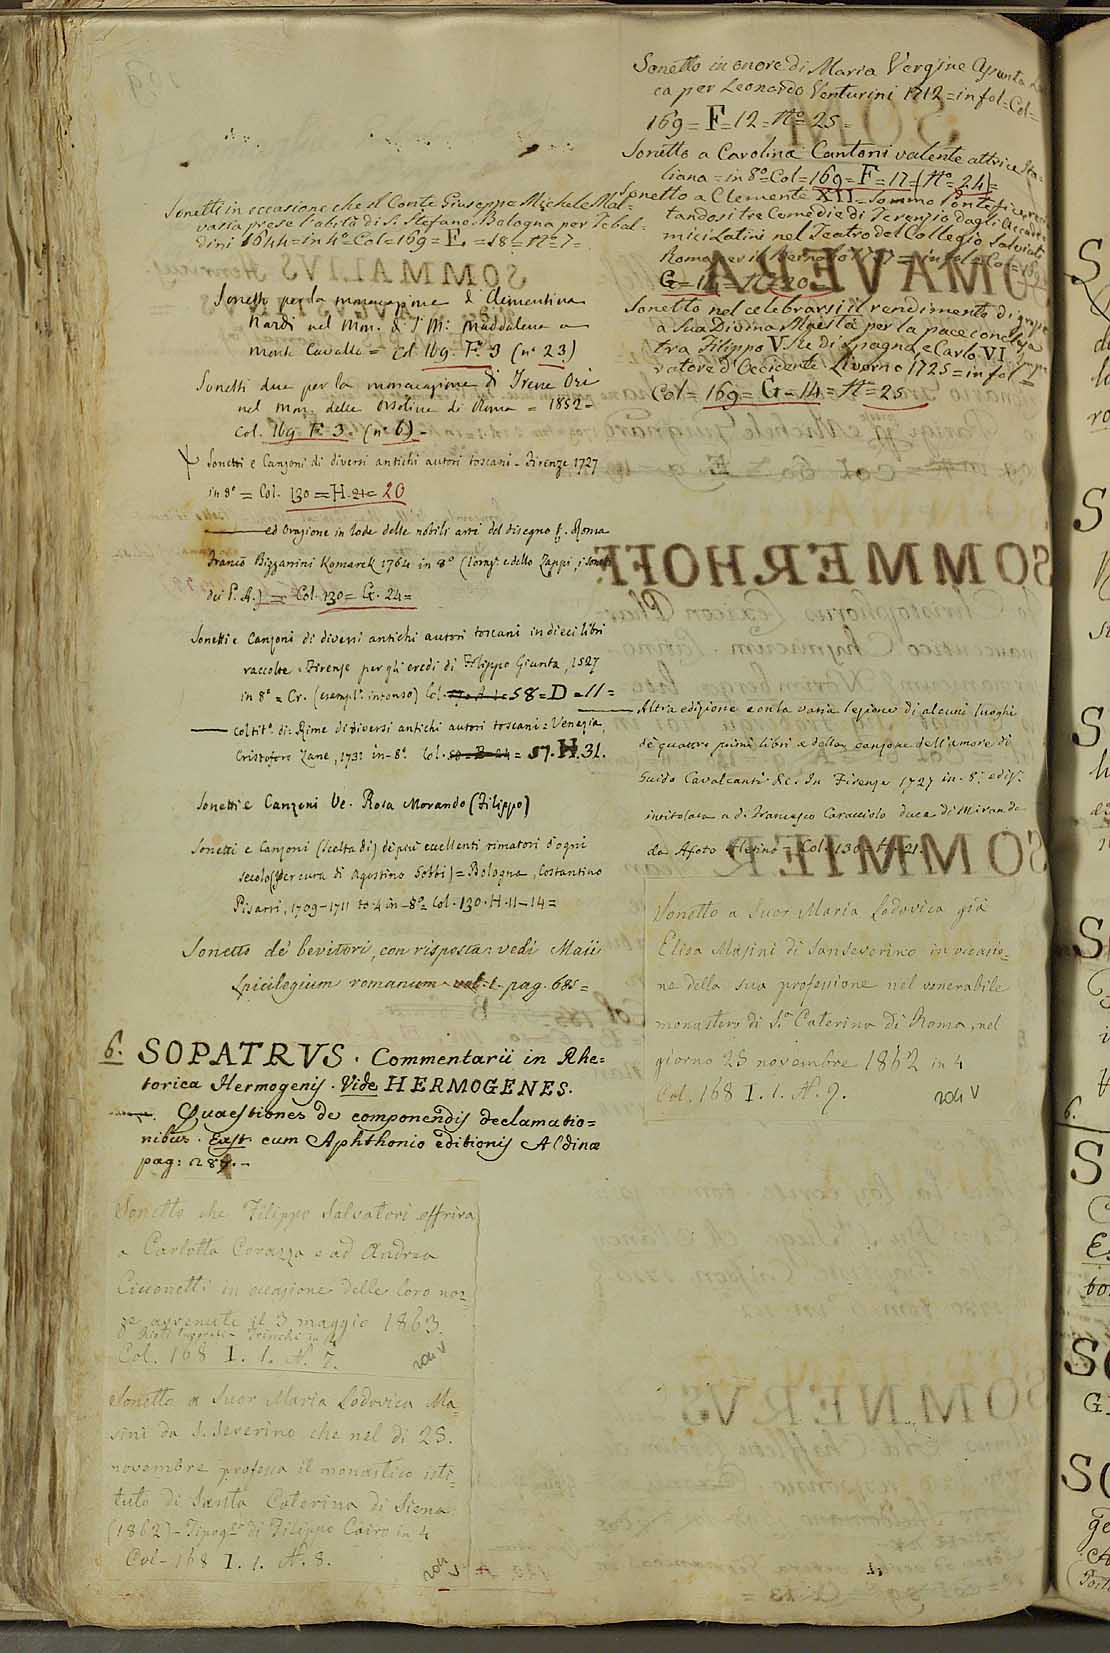 Sonetti in occasione che il Conte Giuseppe Michele Mal=
vasia prese l'abito di S. Stefano. Bologna per Tebal=
dini 1644=in 4°=Col=169=E.=18=N=7=
Sonetti per la monacazione di Clementina
Nardi nel Mon. di S. M. Maddalena a
monte Cavallo = Col. 169. F. 3 (n° 23)
Sonetti due per la monacazione di Irene Ori
nel Mon. delle Orsoline di Roma = 1852=
Col. 169. F. 3. (n° 6)=
Sonetti e Canzoni di diversi antichi autori toscani - Firenze 1727
in 8° = Col. 130=H. 21= 20
ed Orazione in lode delle nobili arti del disegno &. Roma
Bizzarrini Komarek 1764 in 8°
dei P. A.) = Col. 130= G. 24=
Sonetti e Canzoni di diversi antichi autori toscani in dieci libri
raccolte. Firenze per gli eredi di Filippo Giunta, 1527
in 8° = Cr. (esempl.° intonso) Col. 58=D=11=
col tit.° di: Rime di diversi antichi autori toscani: Venezia,
Cristoforo Zane, 1731 in-8°. Col. 50-B-24 = 57.H.31.
Sonetti e Canzoni Ve. Rosa Morando (Filippo)
Sonetti e Canzoni (scelta di) de' più eccellenti rimatori d'ogni
secolo (per cura di Agostino Gobbi) = Bologna, Costantino
Pisarri, 1709-1711 to: 4 in-8°= Col. 130. H. 11-14=
Sonetto de' bevitori, con risposta: vedi Maii
Spicilegium romanum vol. 1. pag. 685=
6. SOPATRVS. Commentarii in Rhe=
torica Hermogenis. Vide HERMOGENES.
Quaestiones de componendis declamatio=
nibus. Exst. cum Aphthonio editionis Aldinæ
pag:
Sonetto che Filippo Salvatori offriva
a Carlotta Corazza e ad Andrea
Cicconetti in occasione delle loro noz=
ze avvenute il 3 maggio 1863.
Col. 168 I. 1. N. 7.
Sonetto a Suor Maria Lodovica Ma=
sini da S. Severino che nel di 25.
novembre professa il monastico isti=
tuto di Santa Caterina di Siena
(1862)-Tipog.ª di Filippo Cairo in 4
Col-168 I. 1. N. 8.
Sonetto in onore di Maria Vergine Assunta
ca per Leonardo Venturini 1712=in fol=Col=
169=F=12=N°=25=
Sonetto a Carolina Cantoni valente attrice Ita=
liana=in 8°=Col=169=F=17=(N°=24)=
Sonetto a Clemente XII=Sommo Pontefice,
tandosi tre Comedie di Terenzio dagli
mici Latini nel Teatro del Collegio Salviati
Sonetto nel celebrarsi il rendimento di grazie
a Sua Divina Maestà per la pace conclusa
tra Filippo V. Re di Spagna, e Carlo VI Impe=
ratore d'Occidente Livorno 1725=in fol=
Col=169=G=14=N=25
Altra edizione e con la varia lezione di alcuni luoghi
de' quattro primi libri e della canzone dell'amore di
Guido Cavalcanti &c. In Firenze 1727 in-8°. ediz.e
intitolata a d. Francesco Caracciolo duca di Miranda
da
Sonetto a Suor Maria Lodovica già
Elisa Masini di Sanseverino in occasio=
ne della sua professione nel venerabile
monastero di S.ª Caterina di Roma, nel
giorno 25 novembre 1862 in 4
Col. 168 I. 1. N. 9.